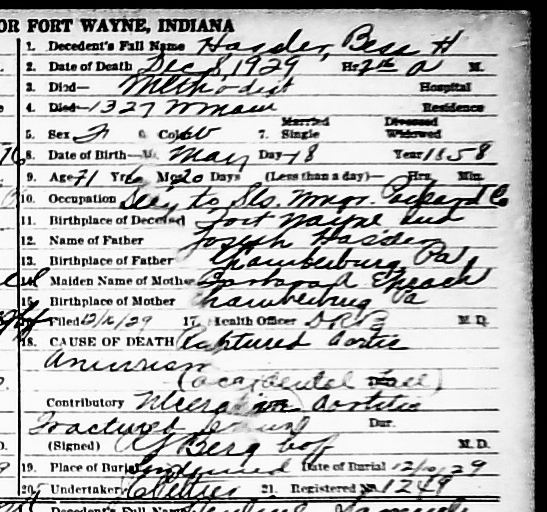 OR FORT WAYNE, INDIANA
1. Decedent's Full Name Hasder, Bess H
2. Date of Death Dec 8, 1929 Hr 7th A M.
3. Died— Methodist Hospital
4. Died— 1327 W Residence
5. Sex F 6. Color W 7. Married Single Divorced Widowed
8. Date of Birth—Mo. May Day 18 Year 1858
9. Age 71 Yrs. 6 Mos. 20 Days (Less than a day)— Hrs. Min.
10. Occupation Secy to Sls. Mngr. Packard Co
11. Birthplace of Deceased Fort Wayne Ind
12. Name of Father Joseph Hasder
13. Birthplace of Father Chamberburg Pa
14. Maiden Name of Mother Barbara
15. Birthplace of Mother Chamberburg Pa
16. Filed 12/16/29 17. Health Officer DRB M. D.
18. CAUSE OF DEATH Ruptured Aortic
Anurism
(accidental fall)
Contributory Ulceration Aortitis
Fractured Dur.
(Signed) Berg M. D.
19. Place of Burial Lindenwood Date of Burial 12/10/29
20. Undertaker 21. Registered No. 1249
Decedent's Full Name